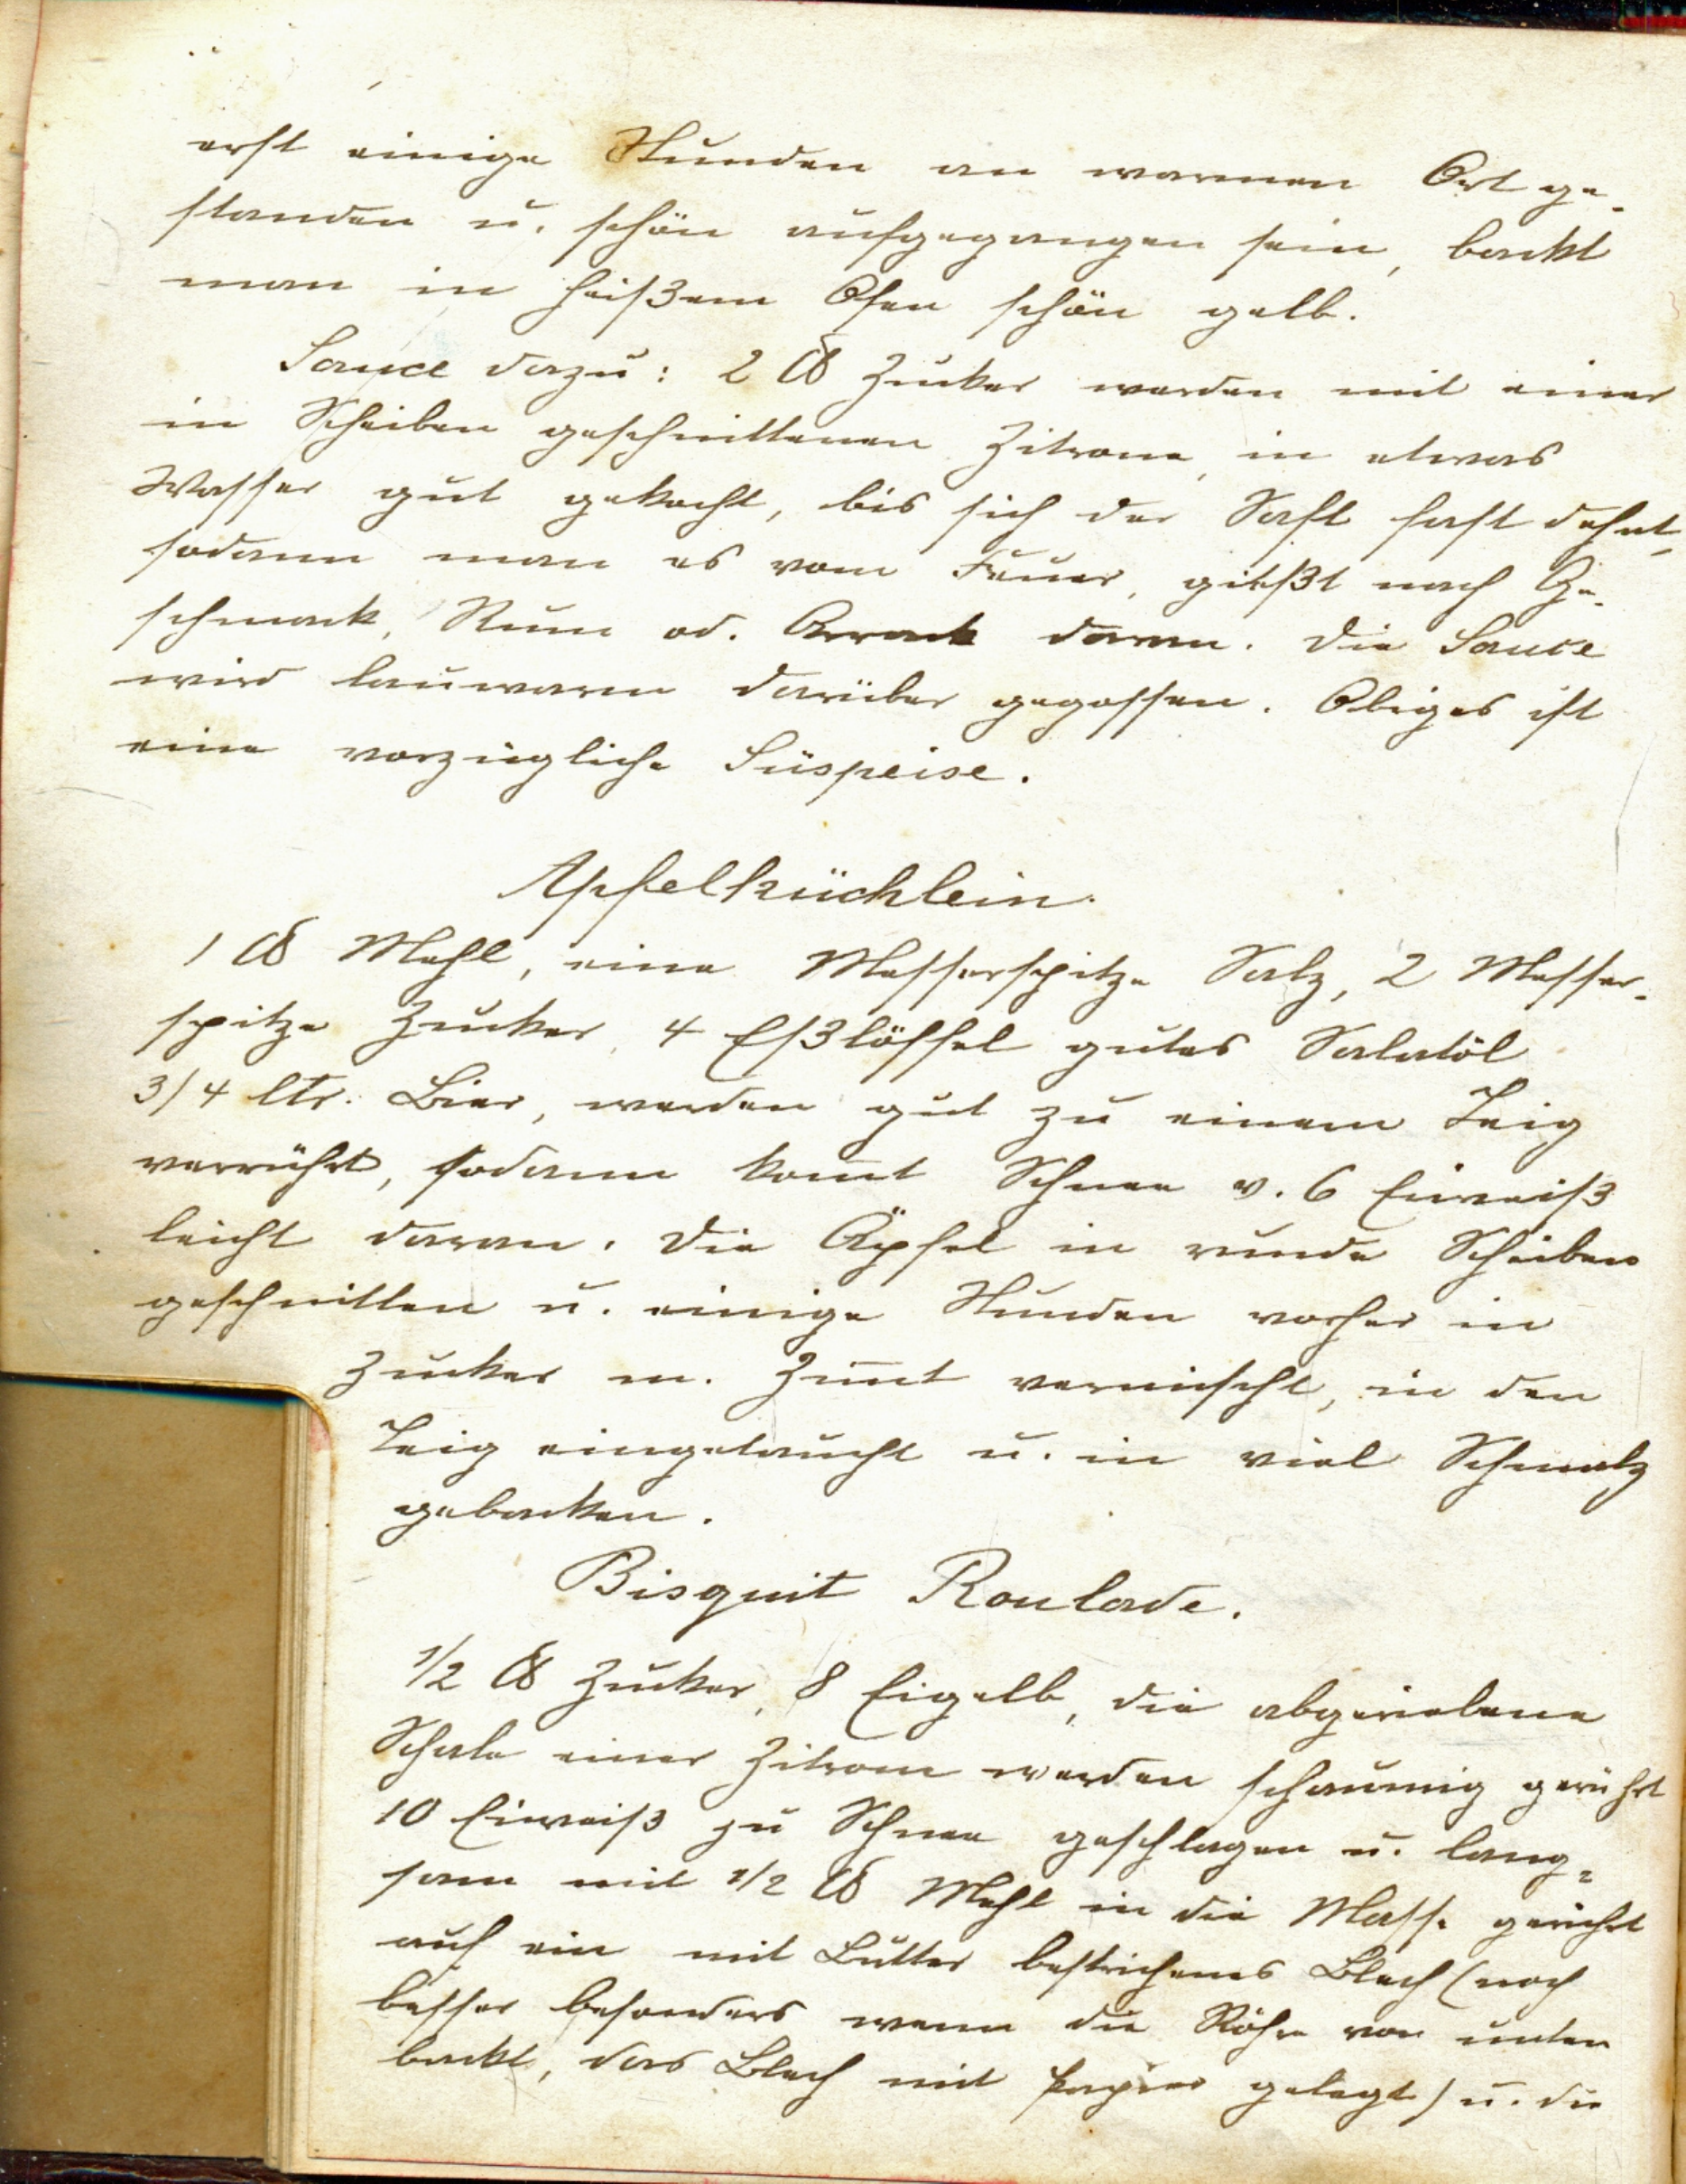 erst einige Stunden an warmen Ort ge-
standen u. schön aufgegangen sein, backt
man in heißem Ofen schön gelb.
Sauce dazu: 2 ℔ Zucker werden mit einer
in Scheiben geschnittenen Zitrone, in etwas
Wasser gut gekocht, bis sich der Saft fast dehnt,
sodann man es vom Feuer, gießt nach Ge-
schmack, Rum od. Arrack daran. Die Sauce
wird lauwarm darüber gegossen. Obiges ist
eine vorzügliche Süspeise.
Apfelküchlein.
1 ℔ Mehl, eine Messerspitze Salz, 2 Messer-
spitze Zucker, 4 Eßlöffel gutes Salatöl
3/4 ltr. Bier, werden gut zu einem Teig
verrührt, sodann kom̅t Schnee v. 6 Eiweiß
leicht daran. Die Äpfel in runde Scheiben
geschnitten u. einige Stunden vorher in
Zucker m. Zim̅t vermischt, in den
Teig eingetaucht u. in viel Schmalz
gebacken.
Bisquit Roulade.
1/2 ℔ Zucker, 8 Eigelb, die abgeriebene
Schale einer Zitrone werden schaumig gerührt
10 Eiweiß zu Schnee geschlagen u. lang=
sam mit 1/2 ℔ Mehl in die Masse gerührt
auf ein mit Butter bestrichenes Blech (noch
besser besonders wenn die Röhre von unten
backt, das Blech mit Papier gelegt) u. die